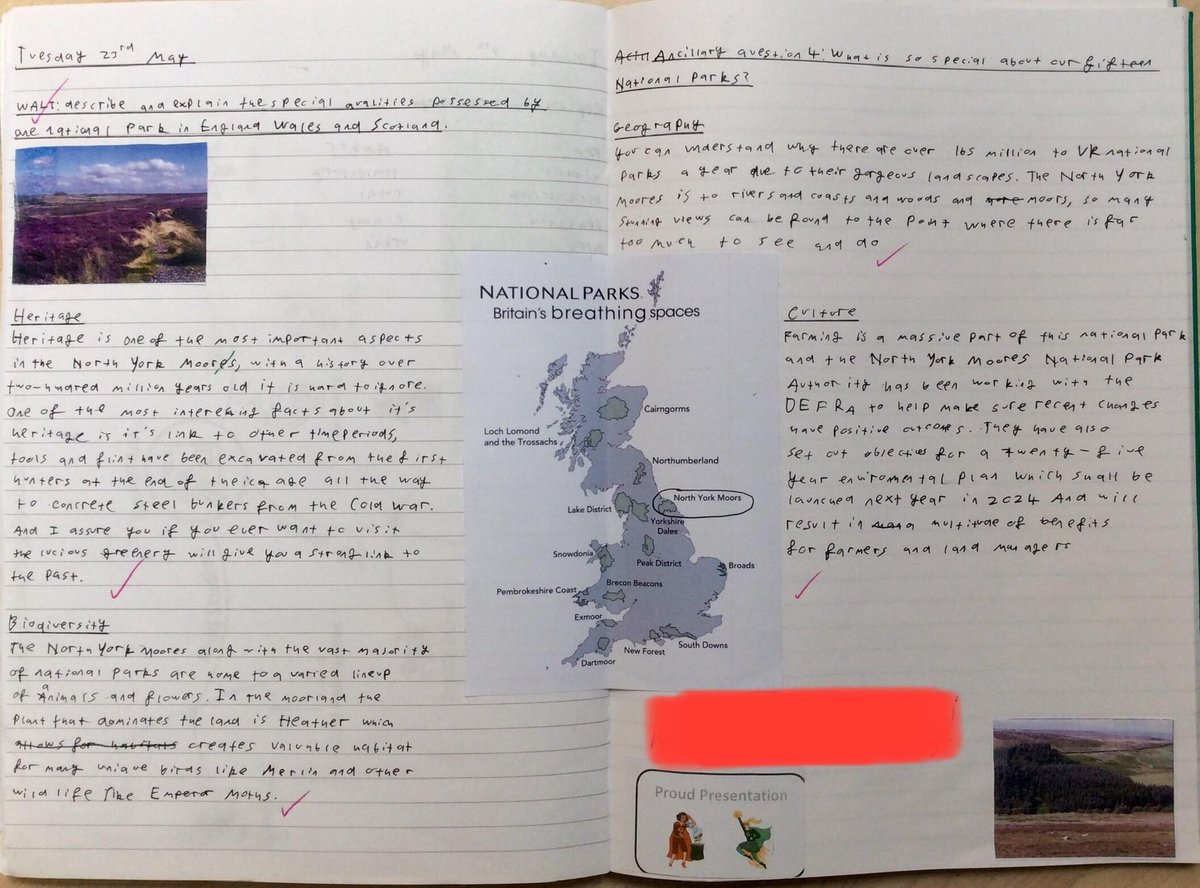 Tuesday 23rd May
WALT: describe and explain the special qualities possessed by
one national park in England Wales and Scotland.
Heritage
Heritage is one of the most important aspects
in the North York Moores, with a history over
two-hundred million years old it is hard to ignore.
One of the most interesing facts about it's
heritage is it's link to other timeperiods,
tools and flint have been excavated from the first
hunters at the end of the ice age all the way
to concrete steel bunkers from the Cold war.
And I assure you if you ever want to visit
the lucious greenery will give you a strong link to
the past.
Biodiversity
The North York Moores along with the vast majority
of national parks are home to a varied lineup
of animals and flowers. In the moorland the
plant that dominates the land is Heather which
allows for habitats creates valuable habitat
for many unique birds like Merlin and other
wild life like Emperor Moths.
Actn Ancillary question 4: What is so special about our fifteen
National Parks?
Geography
You can understand why there are over 165 million to UK national
parks a year due to their gorgeous landscapes. The North York
Moores is to rivers and coasts and woods and more moors, so many
stunning views can be found to the point where there is far
too much to see and do
NATIONAL PARKS
Britain's breathing spaces
Cairngorms
Loch Lomond
and the Trossachs
Northumberland
North York Moors
Lake District
Yorkshire
Dales
Snowdonia
Peak District
Broads
Pembrokeshire Coast
Brecon Beacons
Exmoor
South Downs
New Forest
Dartmoor
Culture
Farming is a massive part of this national park
and the North York Moores National Park
Authority has been working with the
DEFRA to help make sure recent changes
have positive outcomes. They have also
set out objectives for a twenty-five
year enviromental plan which shall be
launched next year in 2024 And will
result in a multitude of benefits
for farmers and land managers
Proud Presentation